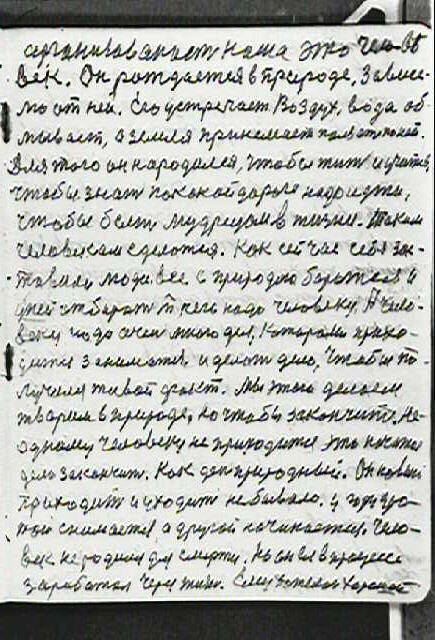 организованность наша это чело
век. Он рождается в природе, зависи-
мо от ней. Его устречает воздух, вода об
мывает, а земля принимает
Для того он народился, чтобы жить и учится,
чтобы знать по какой дороге надо идти,
чтобы быть мудрецом в жизни. Таким
человеком сделатся. Как сейчас себя зас-
тавили люди все с природою боротся и
с ней отбирать то чего надо человеку. А чело-
веку надо очень много дел, которыми прихо-
дится заниматся и делать дело, чтобы по-
лучился живой факт. Мы этого делаем
творим в природе, но чтобы закончить не-
одному человеку не приходится это начатое
дело закончить. Как день природный. Он новый
приходит и уходит небывало.
снимается а другой начинается. Чело-
век не родился для смерти. Но он в процессе
заработал через